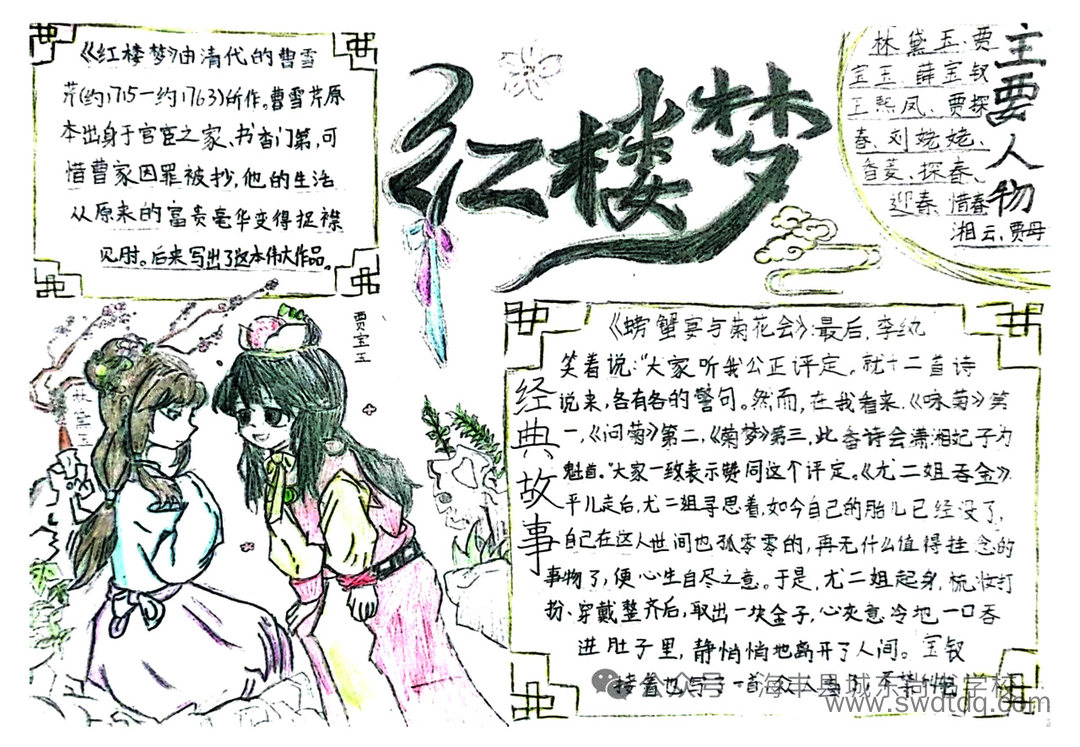 《红楼梦》由清代的曹雪
芹(约1715一约1763)所作。曹雪芹原
本出身于官宦之家、书香门第,可
惜曹家因罪被抄,他的生活
从原来的富贵豪华变得捉襟
见肘。后来写出了这本伟大作品。
红楼梦
主要人物
林黛玉、贾
宝玉、薛宝钗
王熙凤、贾探
春、刘姥姥、
香菱、探春、
迎春、惜春
湘云、贾母
贾宝玉
林黛玉
经典故事
《螃蟹宴与菊花会》:最后,李纨
笑着说:“大家听我公正评定。就十二首诗
说来,各有各的警句。然而,在我看来,《咏菊》第
一,《问菊》第二,《菊梦》第三,此香诗会潇湘妃子为
魁首。”大家一致表示赞同这个评定。《尤二姐吞金》
平儿走后,尤二姐寻思着,如今自己的胎儿已经没了,
自己在这人世间也孤零零的,再无什么值得挂念的
事物了,便心生自尽之意。于是,尤二姐起身,梳妆打
扮、穿戴整齐后,取出一块金子,心灰意冷地一口吞
进肚子里,静悄悄地离开了人间。宝钗
接着也写了一首
公众号 海丰县城东尚 学校
www.swdtdq.com